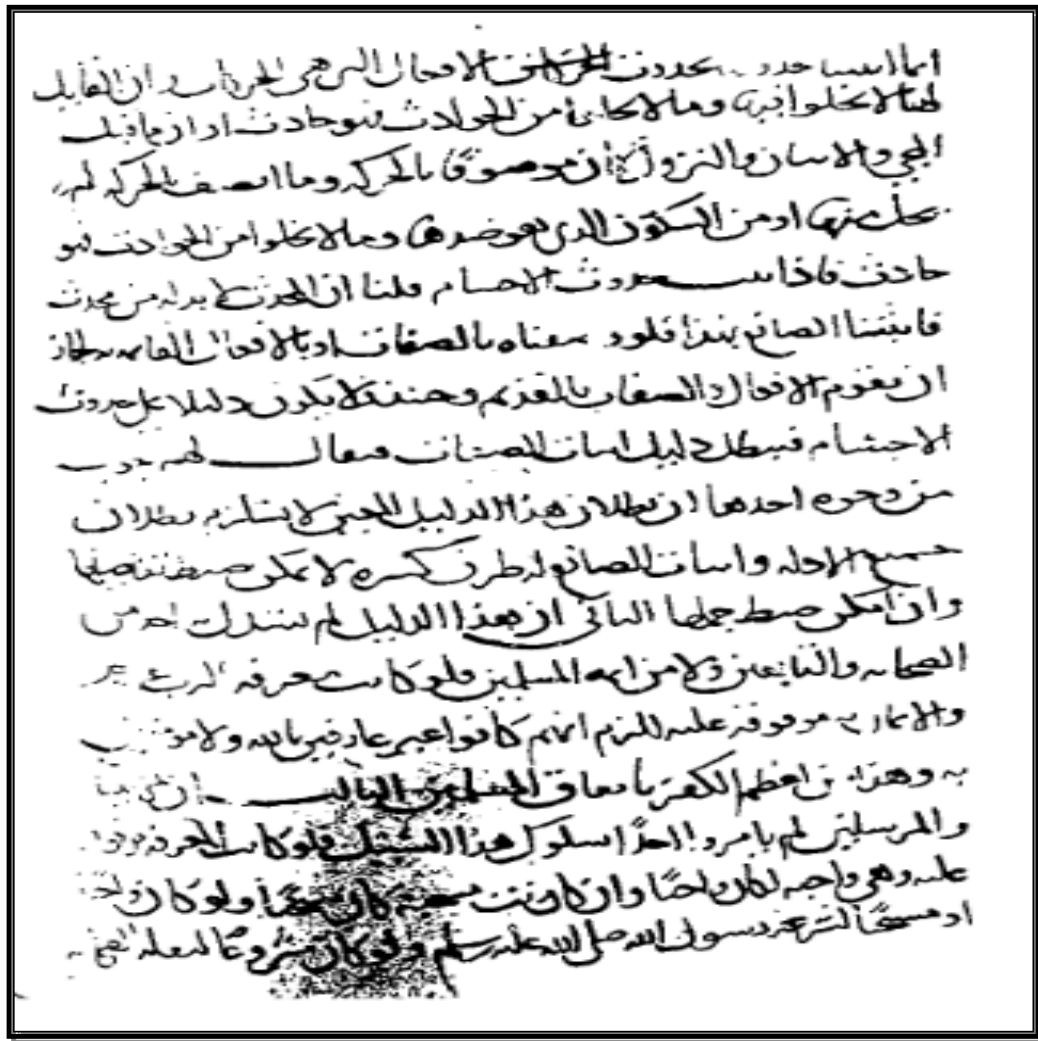 حدوث بحدوث الافعال التي هي الحركات وان القابل
لها لا يخلوا منها وما لا يخلوا من الحوادث فهو حادث او ان ما قبل
المجي والاتيان والنزول كان موصوفا بالحركة وما اتصف بالحركة لم
يخل منها او من السكون الذي هو ضدها وما لا يخلوا من الحوادث فهو
حادث فاذا ثبت حدوث الاجسام قلنا ان المحدث لا بد له من محدث
فاثبتنا الصانع بهذا فلو وصفناه بالصفات او بالافعال القائمة به لجاز
ان تقوم الافعال والصفات بالقديم وحينئذ لا يكون دليلا على حدوث
الاجسام فيبطل دليل اثبات الصفات فيقال لهم
من وجوه احدها ان بطلان هذا الدليل المعين لا يستلزم بطلان
جميع الادلة واثبات الصانع له طرق كثيرة لا يمكن ضبط تفاصيلها
وان امكن ضبط جملها الثاني ان هذا الدليل لم يستدل به احد من
الصحابة والتابعين ولا من ائمة المسلمين فلو كانت معرفة الرب
والايمان به موقوفة عليه للزم انهم كانوا غير عارفين بالله ولا مؤمنين
به وهذا من اعظم الكفر باتفاق المسلمين الثالث ان الانبيا
والمرسلين لم يامروا احدا بسلوك هذا السبيل فلو كانت المعرفة موقوفة
عليه وهي واجبة لكان واجبا وان كانت مستحبة كان مستحبا ولو كان واجبا
او مستحبا لشرعه رسول الله صلى الله عليه وسلم ولو كان مشروعا لنقلته الصحابة